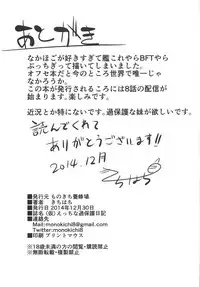 あとがき
なかほごが好きすぎて艦これやらBFTやら
ぶっちぎって描いてしまいました。
オフセ本だと今のところ世界で唯一じゃ
なかろうか。
この本が発行されるころには8話の配信が
始まります。楽しみです。
近況とか特にないです。過保護な妹が欲しいです。
読んでくれて
ありがとうございます!!
2014.12月
きちはち
■発行元 ものきち養蜂場
■著者 きちはち
■発行日 2014年12月30日
■誌名 (仮)えっちな過保護日記
■連絡先
Mail/monokichi8@gmail.com
Twitter/monokichi8
■印刷 プリントマウス
※18歳未満の方の閲覧・購読禁止
※無断転載・複製禁止